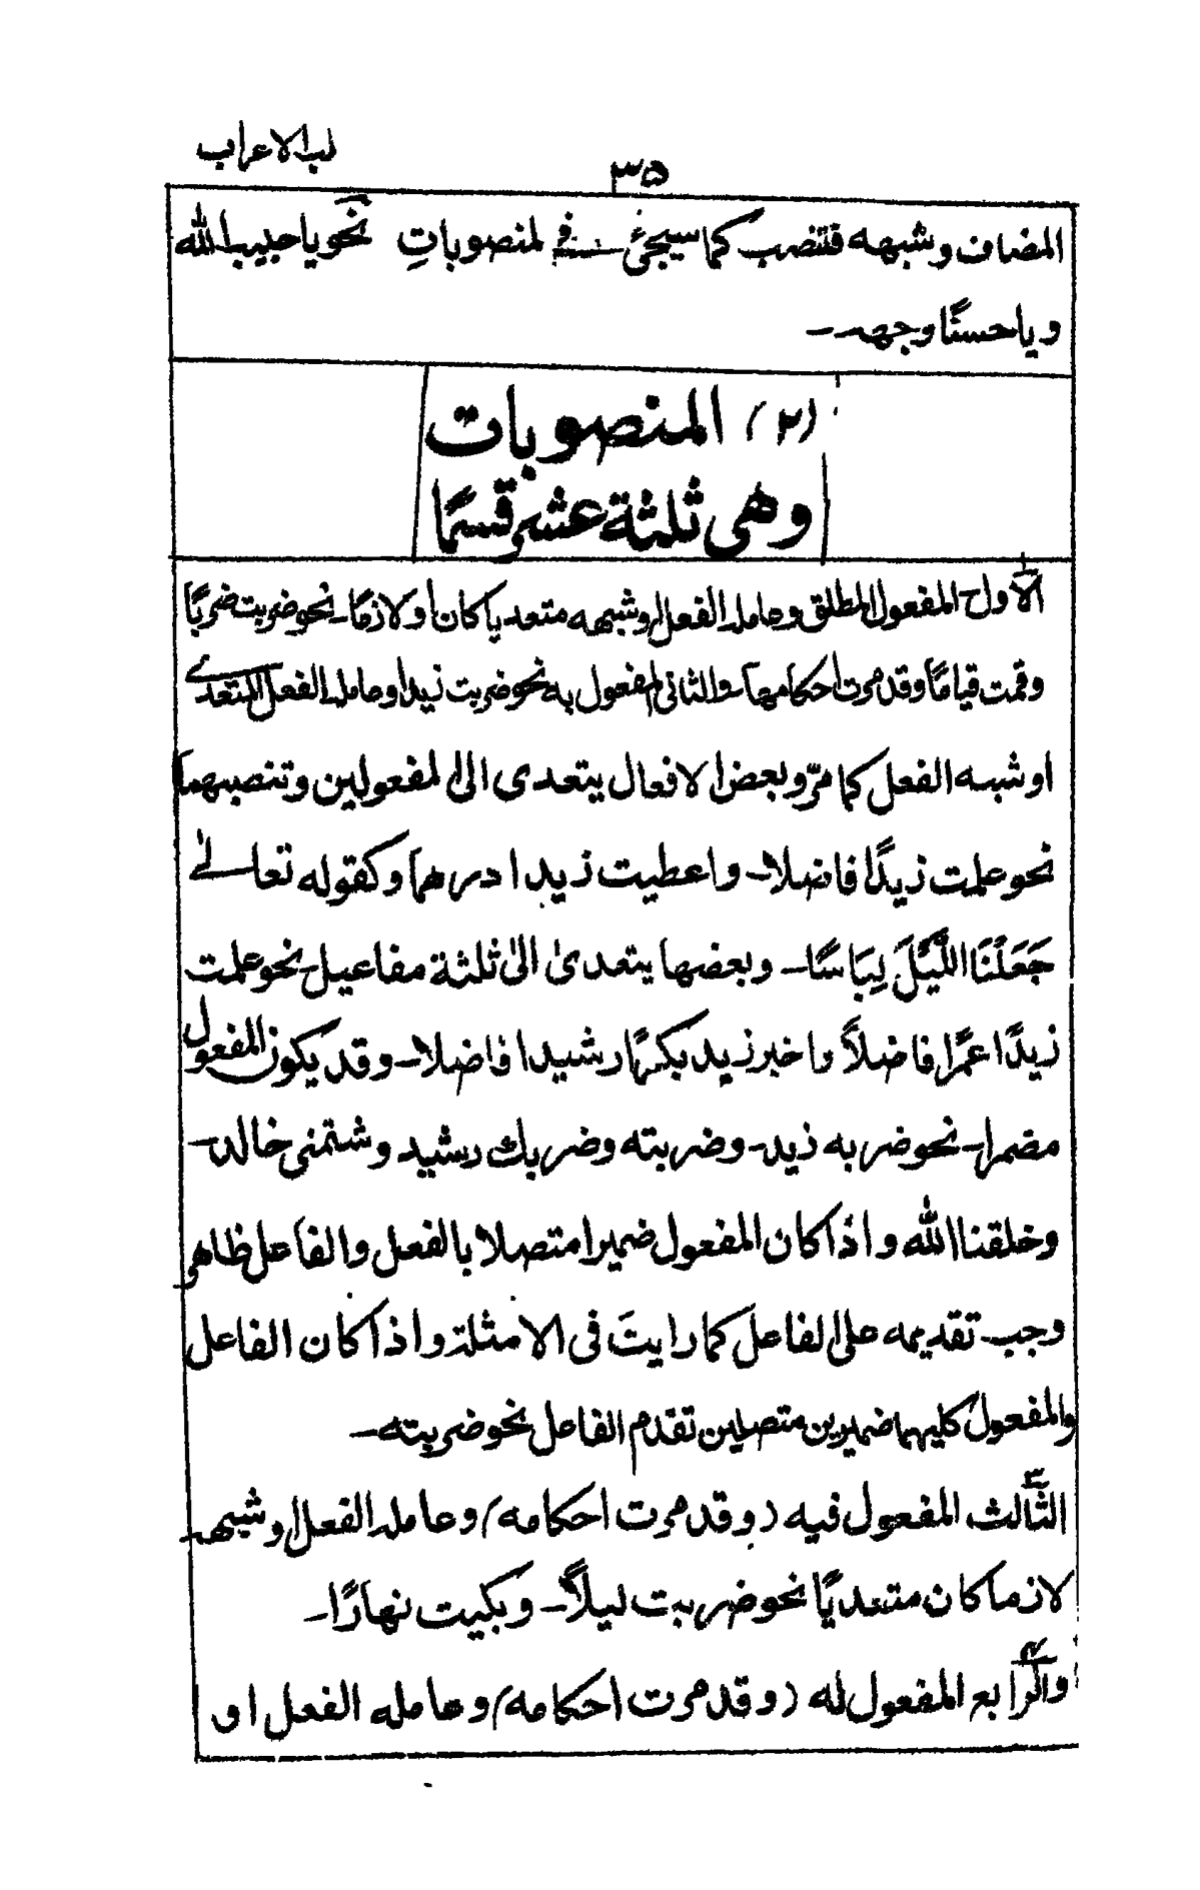 لب الاعراب
٣٥
المضاف وشبهه فتنصب كما سيجئ فی لمنصوباتِ نحو يا حبيب الله
ويا حسنًا وجهه۔
(٢) المنصوبات
وهی ثلثة عشر قسمًا
الاول المفعول المطلق وعامله الفعل وشبهه متعديا كان او لازمًا۔ نحو ضربت ضربًا
وقمت قيامًا وقد مرت احكامها۔ والثانی المفعول به نحو ضربت زيدا وعامله الفعل المتعدے
او شبه الفعل كما مرّ وبعض الافعال يتعدی الی المفعولين وتنصبهما
نحو علمت زيدًا فاضلا۔ واعطيت زيدا درهما وكقوله تعالےٰ
جَعَلْنَا اللَّيْلَ لِبَاسًا۔ وبعضها يتعدیٰ الیٰ ثلثة مفاعيل نحو علمت
زيدًا عمرًا فاضلاً واخبر زيد بكرًا رشيدا فاضلا۔ وقد يكون المفعول
مضمرا۔ نحو ضربه زيد۔ وضربته وضربك رشيد وشتمنی خالد۔
وخلقنا الله واذا كان المفعول ضميرا متصلا بالفعل والفاعل ظاهر
وجب تقديمه علی الفاعل كما رايتَ فی الامثلة واذا كان الفاعل
والمفعول كليهما ضميرين متصلين تقدم الفاعل نحو ضربته۔
الثالث المفعول فيه (وقد مرت احكامه) وعامله الفعل وشبهه
لازما كان متعديًا نحو ضربت ليلاً۔ وبكيت نهارًا۔
والرابع المفعول له (وقد مرت احكامه) وعامله الفعل او